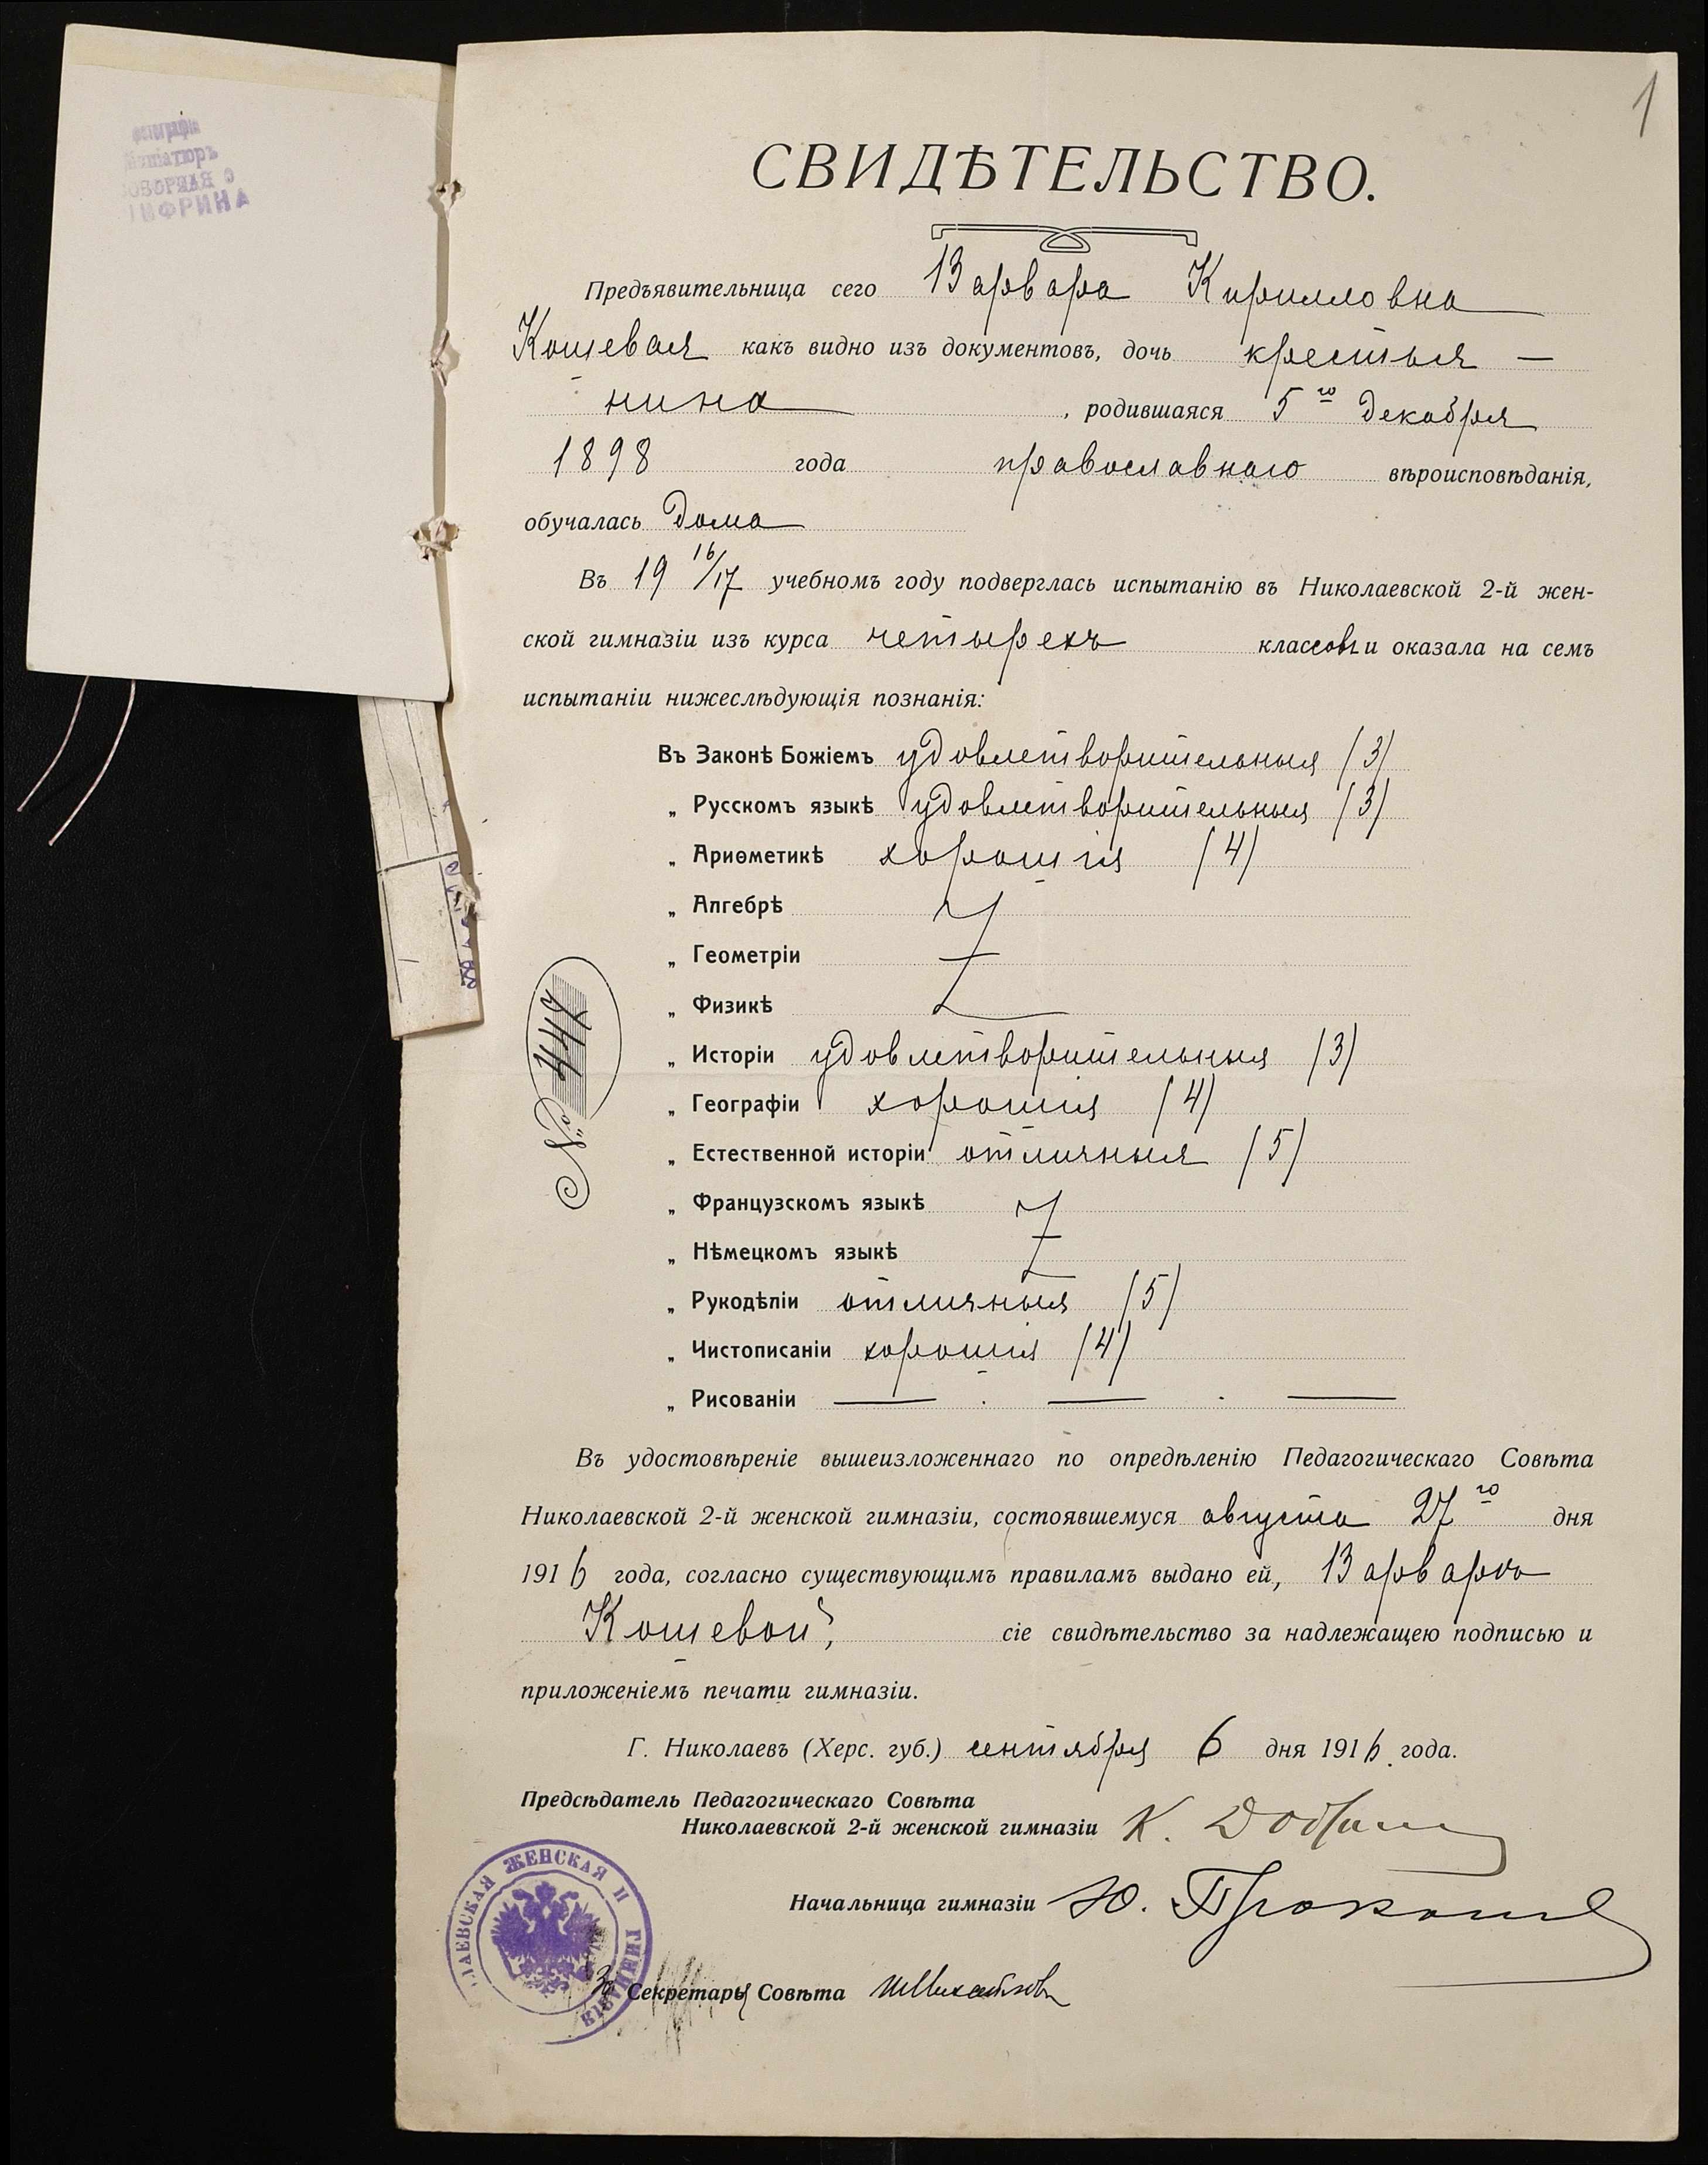 1
СВИДѢТЕЛЬСТВО.
Предъявительница сего Варвара Кирилловна
Кошевая какъ видно изъ документовъ, дочь крестья-
нина, родившаяся 5го декабря
1898 года православнаго вѣроисповѣданія,
обучалась дома
Въ 1916/17 учебномъ году подверглась испытанію въ Николаевской 2-й жен-
ской гимназіи изъ курса четырехъ классовъ и оказала на семъ
испытаніи нижеслѣдующія познанія:
Въ Законѣ Божіемъ удовлетворительныя (3)
„ Русскомъ языкѣ удовлетворительныя (3)
„ Ариѳметикѣ хорошія (4)
„ Алгебрѣ
„ Геометріи
„ Физикѣ
„ Исторіи удовлетворительныя (3)
„ Географіи хорошія (4)
„ Естественной исторіи отличныя (5)
„ Французскомъ языкѣ
„ Нѣмецкомъ языкѣ
„ Рукодѣліи отличныя (5)
„ Чистописаніи хорошія (4)
„ Рисованіи — . — . —
№ 447
Въ удостовѣреніе вышеизложеннаго по опредѣленію Педагогическаго Совѣта
Николаевской 2-й женской гимназіи, состоявшемуся августа 27го дня
1916 года, согласно существующимъ правиламъ выдано ей, Варварѣ
Кошевой, сіе свидѣтельство за надлежащею подписью и
приложеніемъ печати гимназіи.
Г. Николаевъ (Херс. губ.) сентября 6 дня 1916 года.
Предсѣдатель Педагогическаго Совѣта
Николаевской 2-й женской гимназіи К.
Начальница гимназіи Ю.
За Секретаря Совѣта
ЛАЕВСКАЯ ЖЕНСКАЯ II ГИМНАЗІЯ